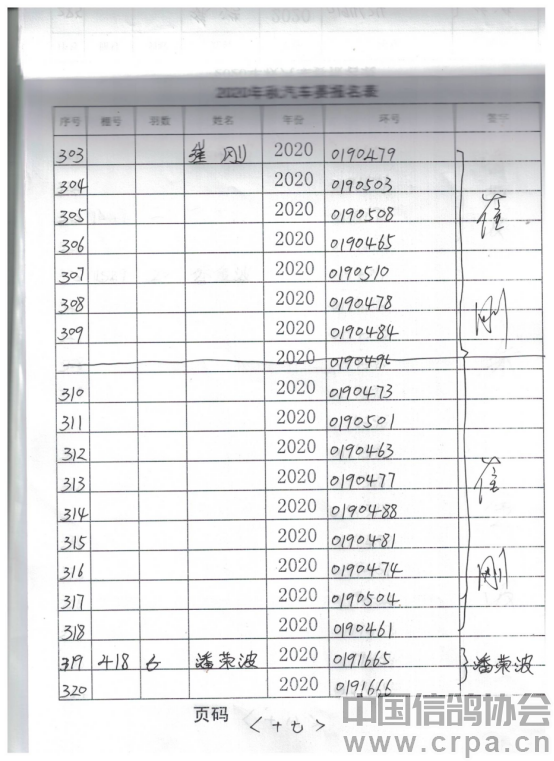 2020年秋汽车赛报名表
序号 棚号 羽数 姓名 年份 环号 签字
303 崔刚 2020 0190479
304 2020 0190503
305 2020 0190508
306 2020 0190465
307 2020 0190510
308 2020 0190478
309 2020 0190484
2020 0190496
310 2020 0190473
311 2020 0190501
312 2020 0190463
313 2020 0190477
314 2020 0190488
315 2020 0190481
316 2020 0190474
317 2020 0190504
318 2020 0190461
崔刚
崔刚
319 418 6 潘荣波 2020 0191665 潘荣波
320 2020 0191666
页码 <十七>
中国信鸽协会
www.crpa.cn